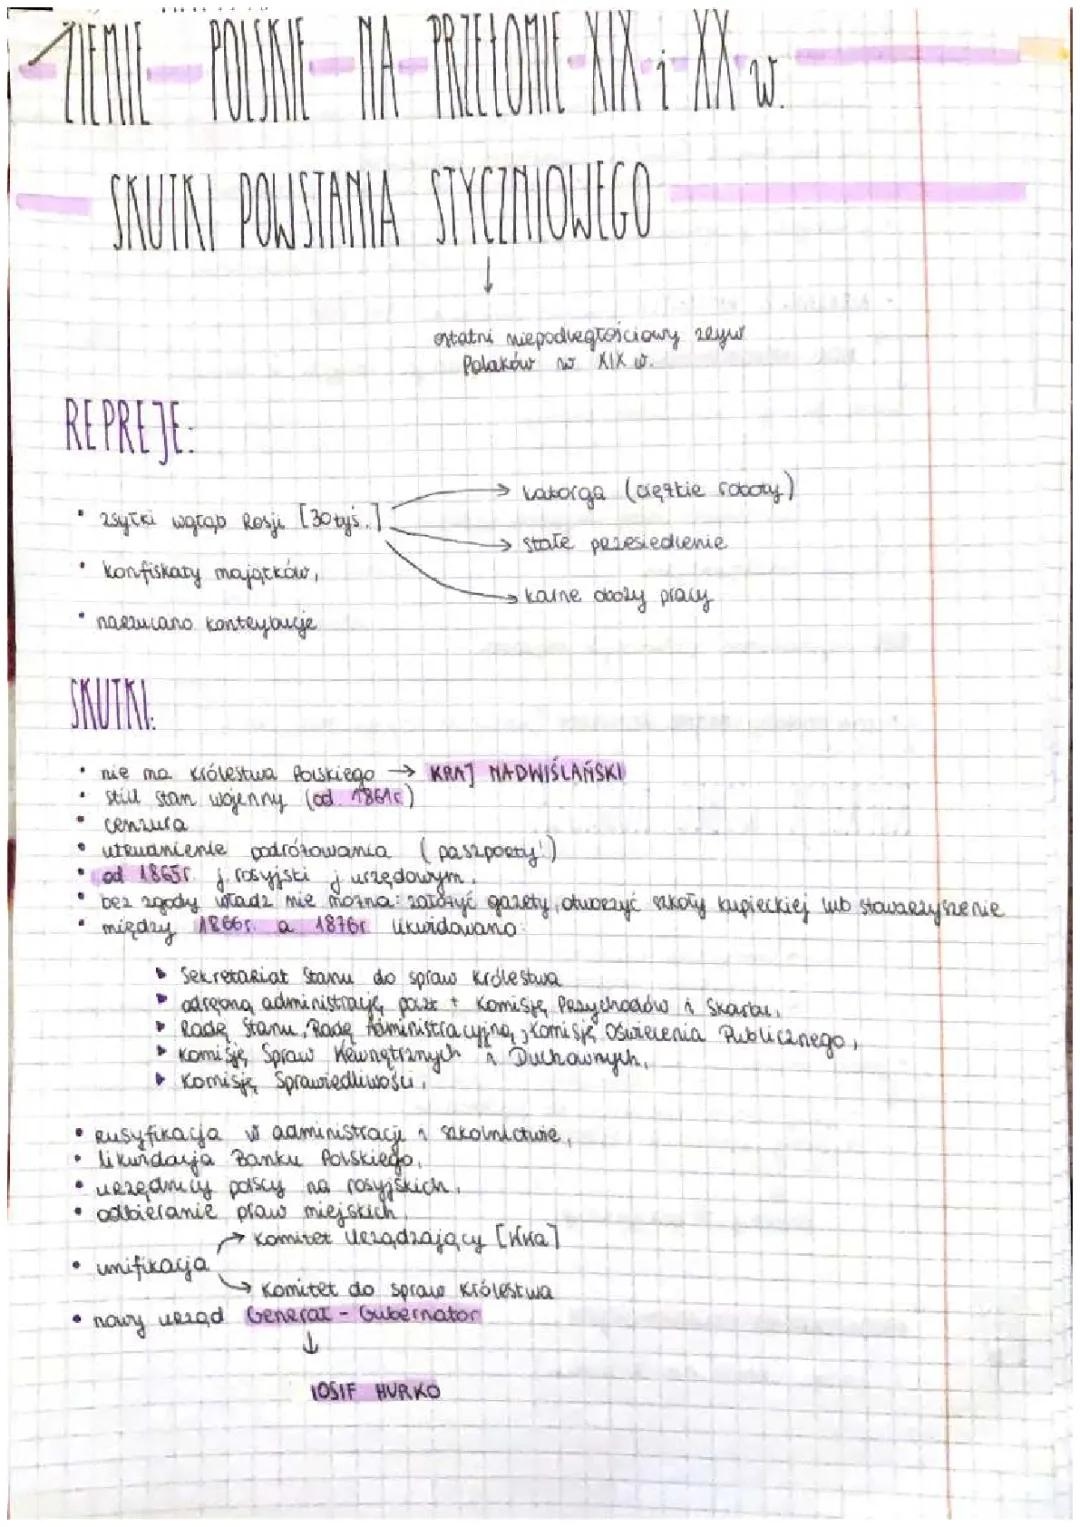 ZIEMIE POLSKIE NA PRZEŁOMIE XIX i XX w.
SKUTKI POWSTANIA STYCZNIOWEGO
↓
ostatni niepodległościowy zryw
Polaków w XIX w.
REPRESJE:
• zsyłki wgłąb Rosji [30 tyś.] → katorga (ciężkie roboty)
→ stałe przesiedlenie
• konfiskaty majątków,
→ karne obozy pracy
• narzucano kontrybucje
SKUTKI:
• nie ma Królestwa Polskiego → KRAJ NADWIŚLAŃSKI
• still stan wojenny (od 1861r)
• cenzura
• utrudnienie podróżowania (paszporty!)
• od 1865r. j. rosyjski j urzędowym.
• bez zgody władz nie można: założyć gazety, otworzyć szkoły kupieckiej lub stowarzyszenie
• między 1866r. a 1876r. likwidowano:
▸ Sekretariat Stanu do spraw Królestwa
▸ odrębną administrację poczt + Komisję Przychodów i Skarbu,
▸ Radę Stanu, Radę Administracyjną, Komisję Oświecenia Publicznego,
▸ Komisję Spraw Wewnętrznych i Duchownych,
▸ Komisję Sprawiedliwości,
• Rusyfikacja w administracji i szkolnictwie,
• likwidacja Banku Polskiego,
• urzędnicy polscy na rosyjskich,
• odbieranie praw miejskich
→ Komitet Urządzający [Wwa]
• unifikacja
→ Komitet do spraw Królestwa
• nowy urząd Generał - Gubernator
↓
IOSIF HURKO